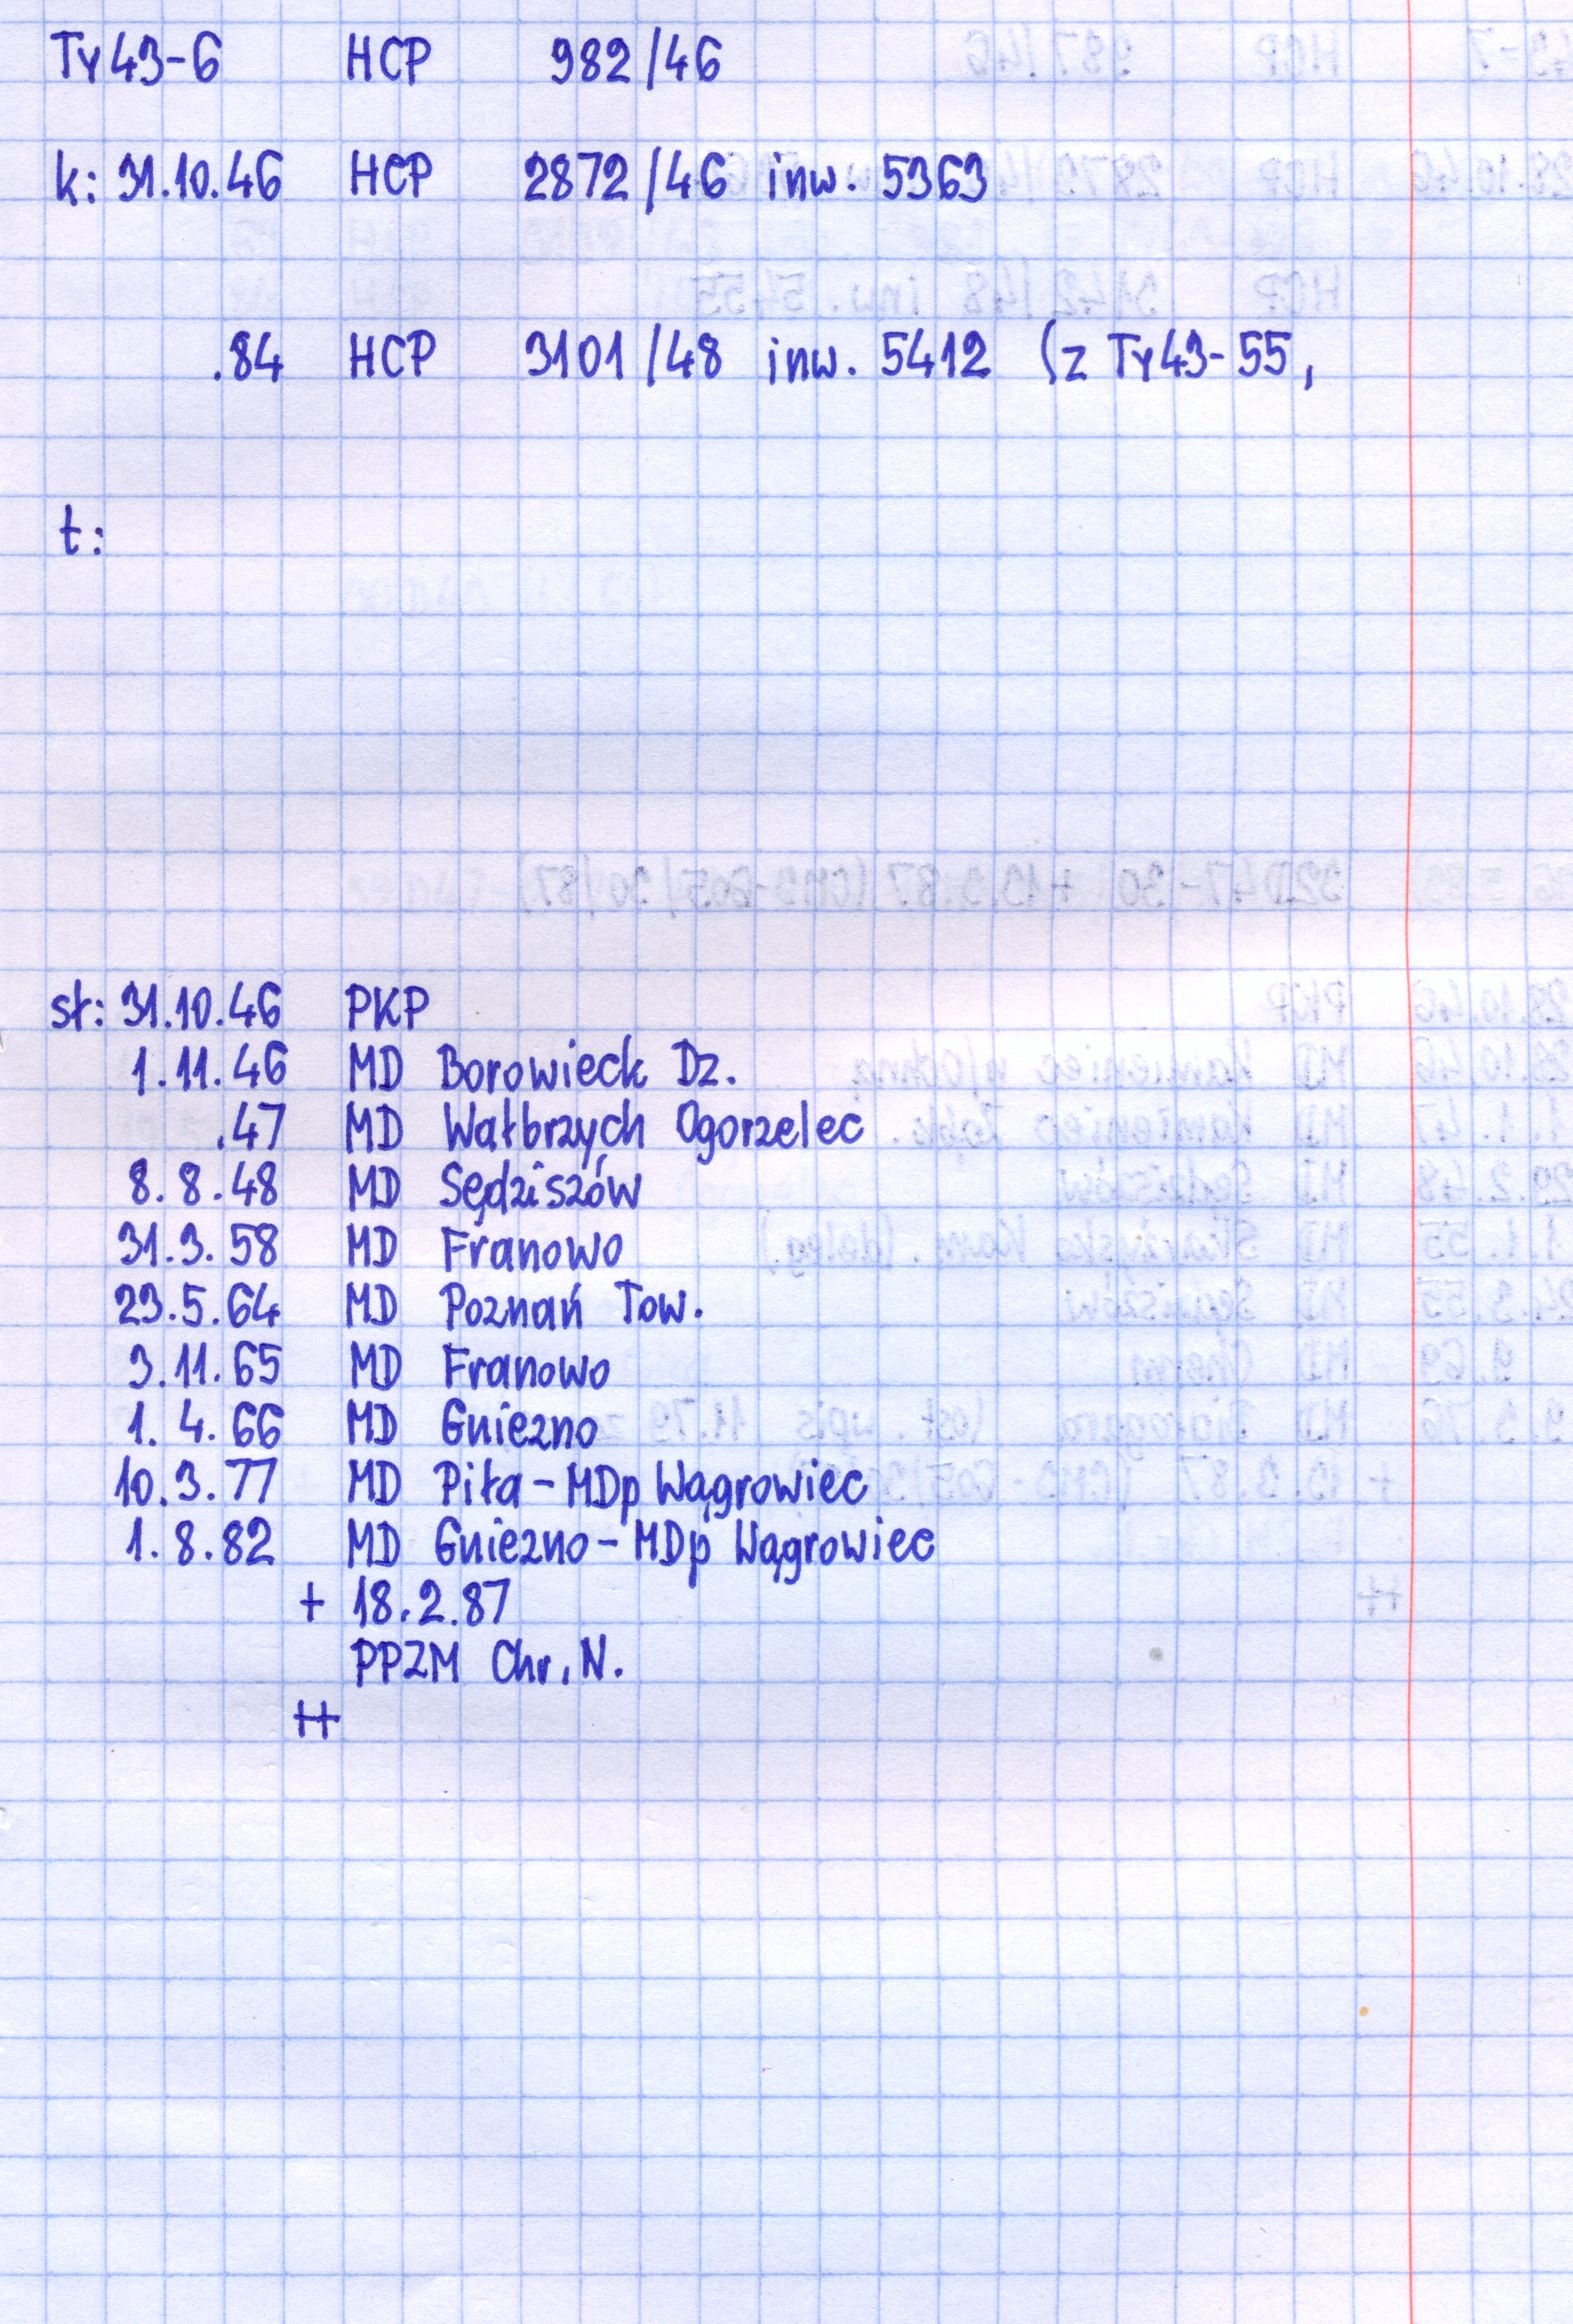 Ty43-6 HCP 982/46
k: 31.10.46 HCP 2872/46 inw. 5363
.84 HCP 3101/48 inw. 5412 (z Ty43-55,
t:
sł: 31.10.46 PKP
1.11.46 MD Borowieck Dz.
.47 MD Wałbrzych Ogorzelec
8.8.48 MD Sędziszów
31.3.58 MD Franowo
23.5.64 MD Poznań Tow.
3.11.65 MD Franowo
1.4.66 MD Gniezno
10.3.77 MD Piła-MDp Wągrowiec
1.8.82 MD Gniezno-MDp Wągrowiec
+ 18.2.87
PPZM Chr. N.
++